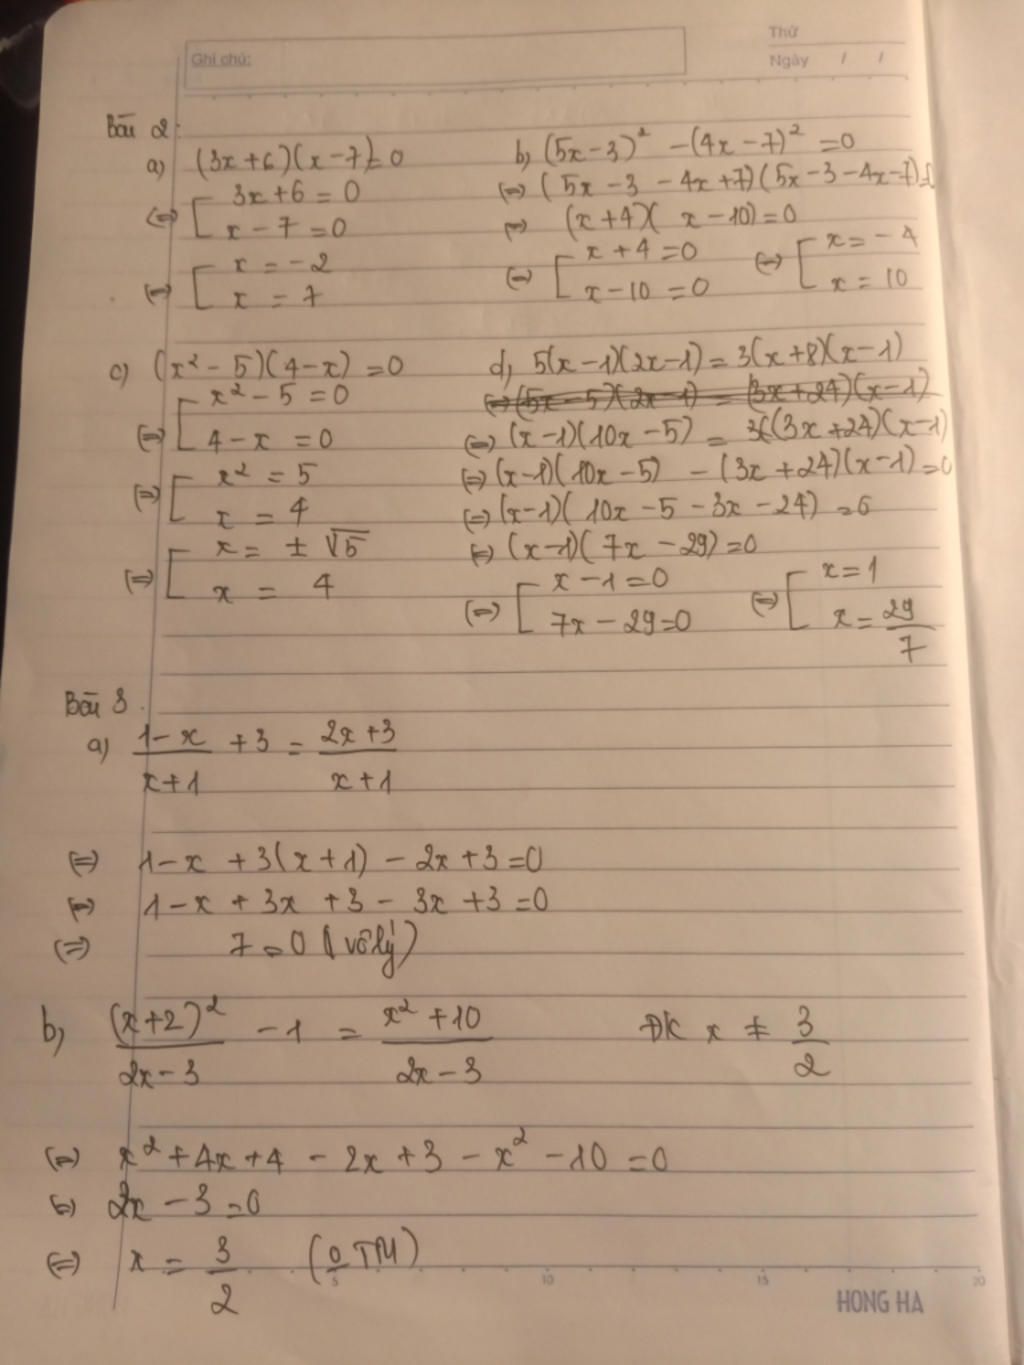 Ghi chú:
Thứ
Ngày / /
Bài 2:
a) (3x+6)(x-7)=0
(=) [ 3x+6=0
x-7=0
(=) [ x=-2
x=7
b, (5x-3)² -(4x-7)² =0
(=) (5x-3-4x+7)(5x-3-4x-7)=0
(=) (x+4)(x-10)=0
(=) [ x+4=0 (=) [ x=-4
x-10=0 x=10
c) (x²-5)(4-x)=0
(=) [ x²-5=0
4-x=0
(=) [ x²=5
x=4
(=) [ x=±√5
x=4
d, 5(x-1)(2x-1)=3(x+8)(x-1)
(=) (5x-5)(2x-1) = (3x+24)(x-1)
(=) (x-1)(10x-5) = (3x+24)(x-1)
(=) (x-1)(10x-5) -(3x+24)(x-1)=0
(=) (x-1)(10x-5-3x-24)=0
(=) (x-1)(7x-29)=0
(=) [ x-1=0 (=) [ x=1
7x-29=0 x=29/7
Bài 3.
a) (1-x)/(x+1) +3 = (2x+3)/(x+1)
(=) 1-x+3(x+1)-2x+3=0
(=) 1-x+3x+3-3x+3=0
(=) 7=0 (vô lý)
b, (x+2)²/(2x-3) -1 = (x²+10)/(2x-3) ĐK x ≠ 3/2
(=) x²+4x+4-2x+3-x²-10=0
(=) 2x-3=0
(=) x=3/2 (0 TM)
5 10 15 20
HONG HA